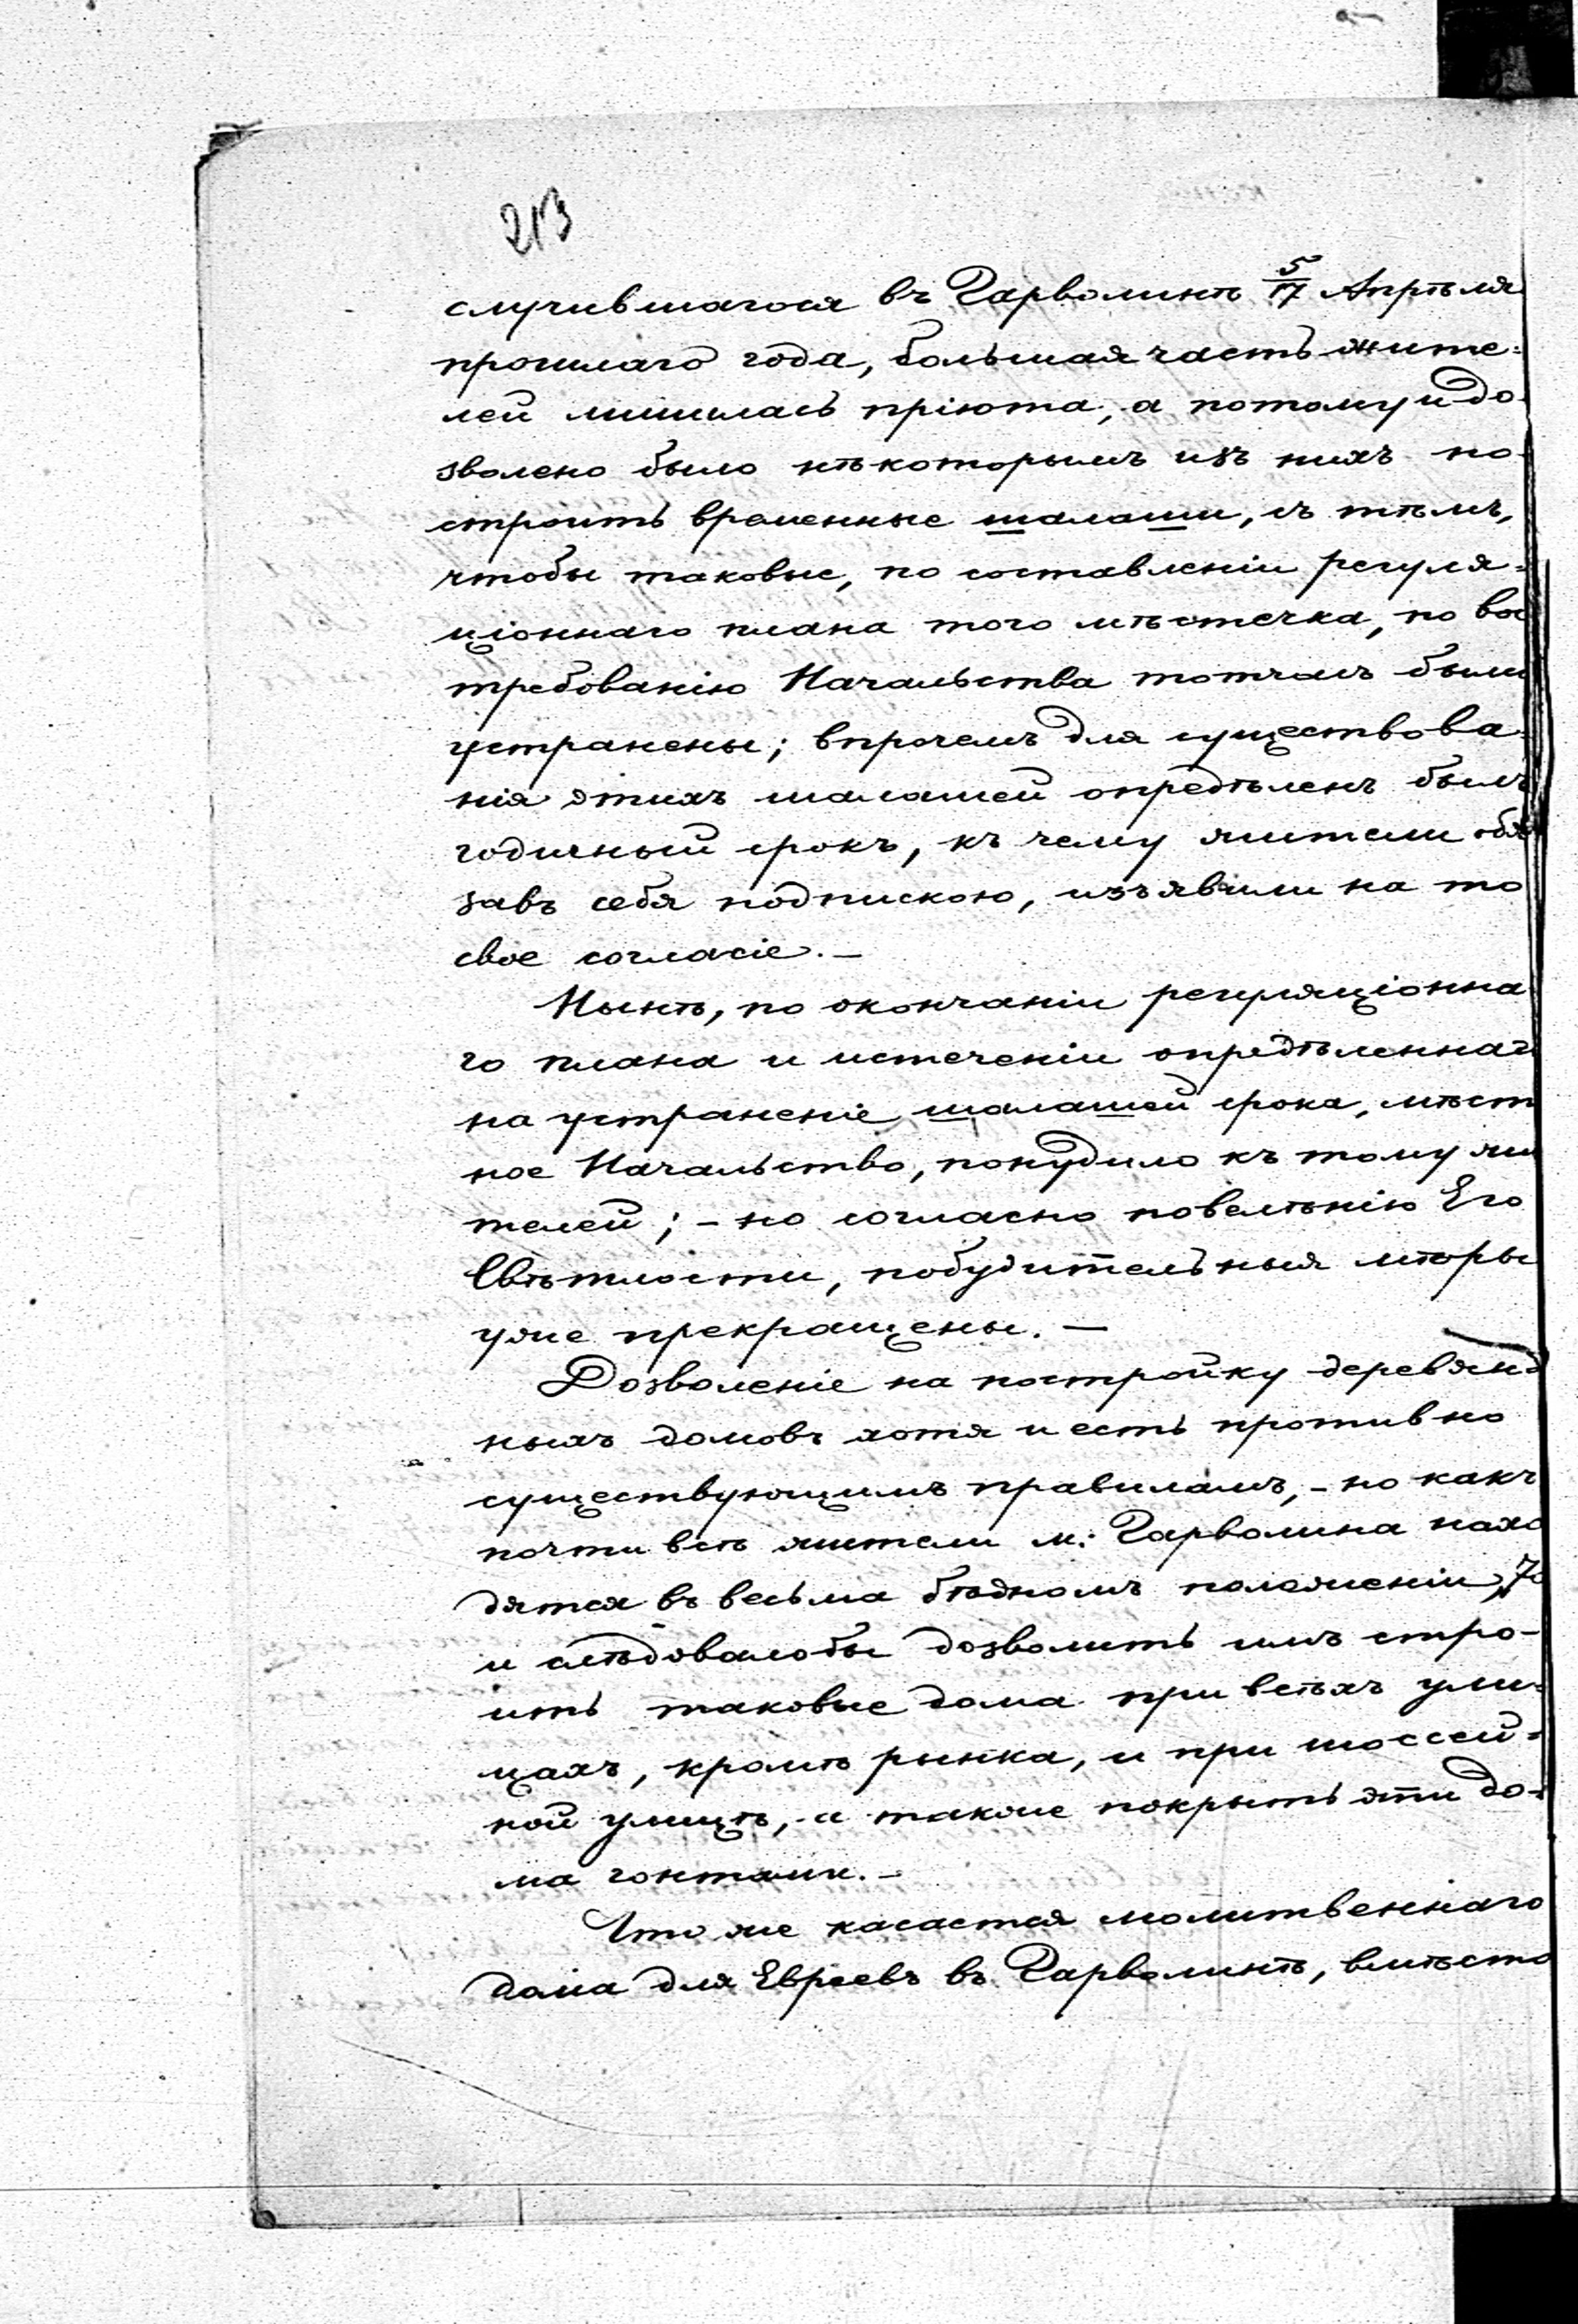 213
случившагося въ Гарволинѣ 5/17 Апрѣля
прошлаго года, большая часть жите=
лей лишилась пріюта, а потому и до-
зволено было нѣкоторымъ изъ нихъ по-
строить временные шалаши, съ тѣмъ,
чтобы таковые, по составленіи регуля=
ціоннаго плана того мѣстечка, по вос
требованію Начальства тотчасъ были
устранены; впрочемъ для существова-
нія этихъ шалашей опредѣленъ былъ
годичный срокъ, къ чему жители обя
завъ себя подпискою, изъявили на то
свое согласіе.—
Нынѣ, по окончаніи регуляціонна
го плана и истеченіи опредѣленнаго
на устраненіе шалашей срока, мѣст
ное Начальство, понудило къ тому жи
телей; – но согласно повелѣнію Его
Свѣтлости, побудительныя мѣры
уже прекращены. —
Дозволеніе на постройку деревян
ныхъ домовъ хотя и есть противно
существующимъ правиламъ, – но какъ
почти всѣ жители м: Гарволина нахо
дятся въ весьма бѣдномъ положеніи, то
и слѣдовало бы дозволить имъ стро-
ить таковые дома при всѣхъ ули=
цахъ, кромѣ рынка, и при шоссей=
ной улицѣ, – а также покрыть эти до-
ма гонтами. –
Что же касается молитвеннаго
дома для Евреевъ въ Гарволинѣ, вмѣсто